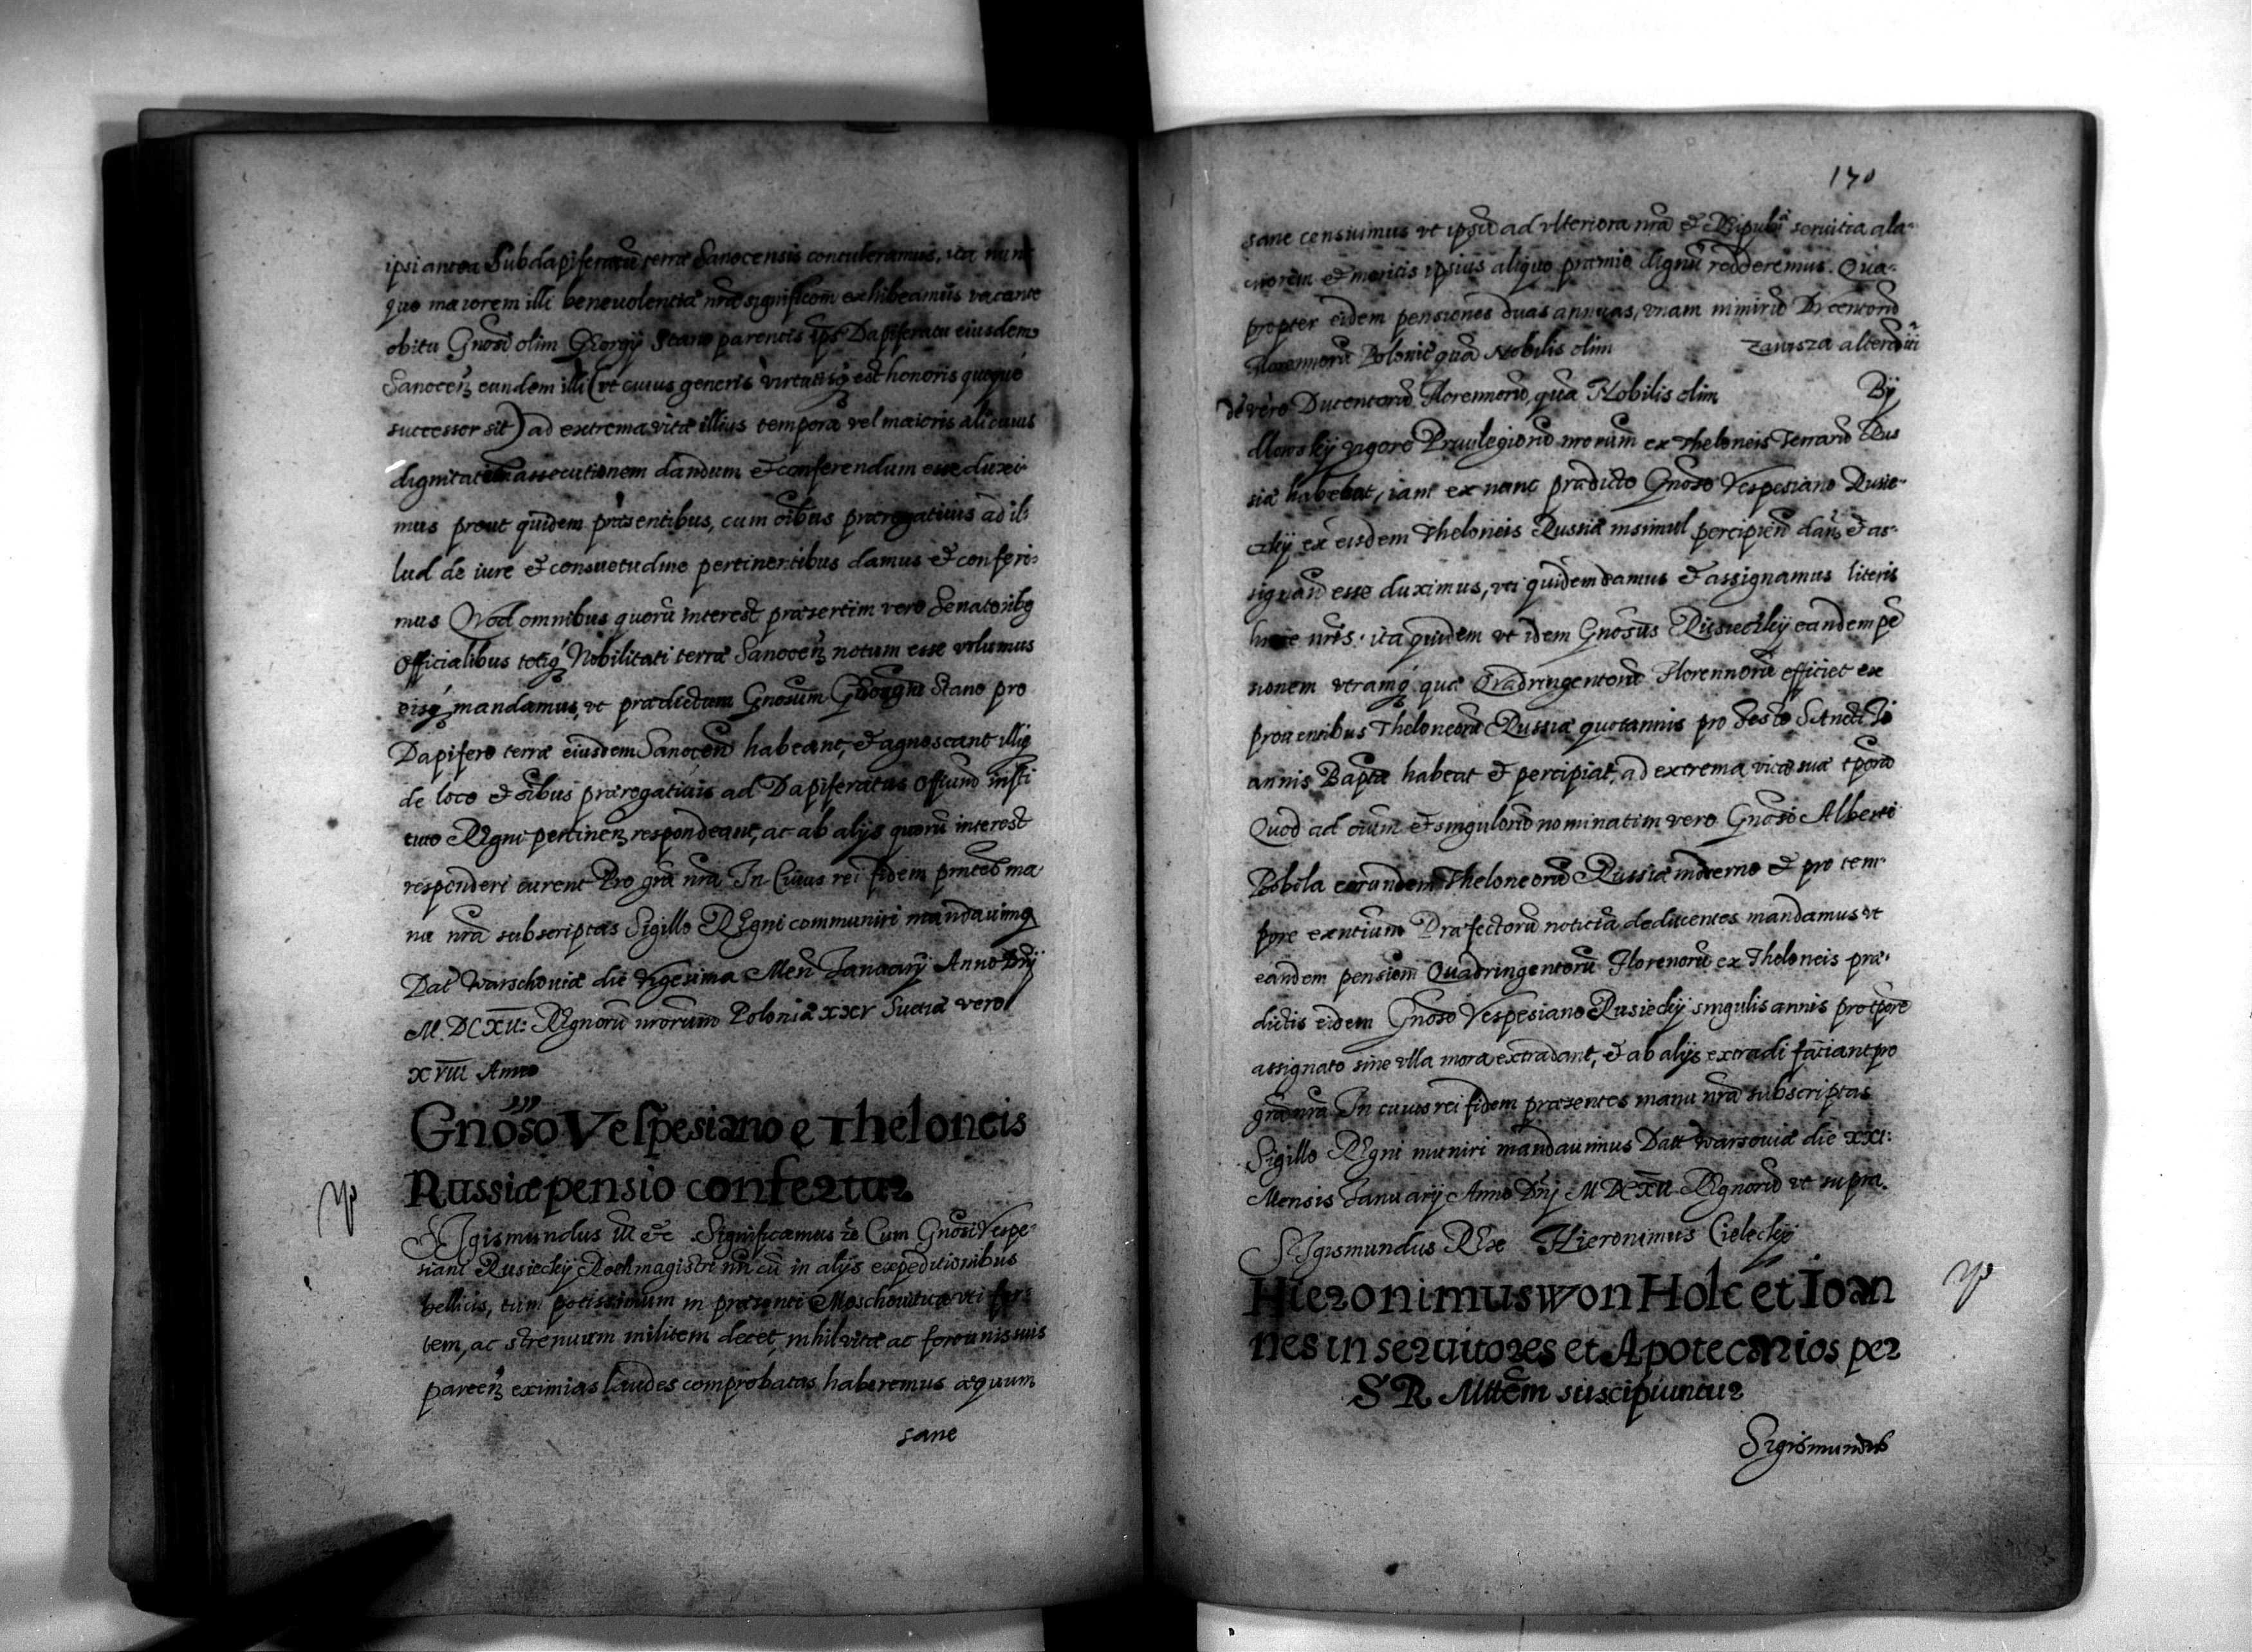 ipsi antea Subdapiferatū terræ Sanocensis contuleramus, ita nunc
quo maiorem illi beneuolentiæ nræ significaōm exhibeamus vacante
obitu Gnosi olim Georgij Stano parentis ips Dapiferatu eiusdem
Sanoceñ eundem illi (vt cuius generis virtutisq est honoris quoque
successor sit) ad extrema vitæ illius tempora vel maioris alicuius
dignitatis assecutionem dandum et conferendum esse duxi-
mus prout quidem præsentibus, cum oibus prærogatiuis ad il-
lud de iure et consuetudine pertinentibus damus et conferi-
mus Quod omnibus quorū interest præsertim vero Senatoribq
Officialibus totiq Nobilitati terræ Sanoceñ notum esse volumus
eisq mandamus, vt prædictum Gnosum Georgiū Stano pro
Dapifero terræ eiusdem Sanoceñ habeant, et agnoscant illiq
de loco et oibus prærogatiuis ad Dapiferatus Offiiūm insti
tuto Regni pertineñ respondeant, ac ab alijs quorū interest
responderi curent Pro gra nra In Cuius rei fidem prntes ma
nu nra subscriptas Sigillo Regni communiri mandauimq
Dat Warschouiæ die vigesima Mens Januarij Anno Dni
M. DC XII: Regnorū nrorum Poloniæ XXV Suetiæ vero
XVIII Anno
Gnoso Vespesiano e Theloneis
Russiæ pensio confertur
Sigismundus III etc Significamus etc Cum Gnosi Vespe-
siani Rusiecky Rothmagistri nri cū in alijs expeditionibus
bellicis, tum potissimum in præsenti Moschouitica vti for-
tem, ac strenuum militem decet, nihil vitæ ac fortunis suis
parceñ eximias laudes comprobatas haberemus æquum
sane
170
sane censuimus vt ipsū ad vlteriora nra et Reipubæ seruitia ala-
criorem et meritis ipsius aliquo præmio dignū redderemus. Qua-
propter eidem pensiones duas annuas, vnam nimirū Ducentorū
Florennorū Polonic quā Nobilis olim Zawsza alterā iti
dē vero Ducentorū Florennorū, quā Nobilis olim By
dlowskij vigore Priuilegiorū nrorum ex Theloneis Terrarū Rus
siæ habebat, iam ex nunc prædicto Gnoso Vespesiano Rusie-
czkij ex eisdem Theloneis Russiæ insimul percipieñ dañ et as-
signañ esse duximus, vti quidem damus et assignamus literis
hisce nris. ita quidem vt idem Gnosus Rusieczkij eandem pē
sionem vtramq quæ Quadringentorū Florennorū efficiet ex
prouentibus Theloneorū Russiæ quotannis pro festo Sancti Io
annis Baptæ habeat et percipiat, ad extrema vitæ suæ tpora
Quod ad oium et singulorū nominatim vero Gnosi Alberti
Bobola eorundem Theloneorū Russiæ moderno et pro tem-
pore exntium Præfectorū noticiā deducentes mandamus vt
eandem pensiom Quadringentorū Florenorū ex Theloneis præ-
dictis eidem Gnoso Vespesiano Rusiecky singulis annis pro tpore
assignato sine vlla mora extradant, et ab alijs extradi faciant pro
gra nra In cuius rei fidem præsentes manu nra subscriptas
Sigillo Regni muniri mandauimus Datt Warsouiæ die XXI:
Mensis Januarij Anno Dni M DC XII Regnorū vt supra.
Sigismundus Rex Hieronimus Cielecky
Hieronimus won Holc et Ioan
nes in seruitores et Apotecarios per
S R Mttem suscipiuntur
Sigismundus